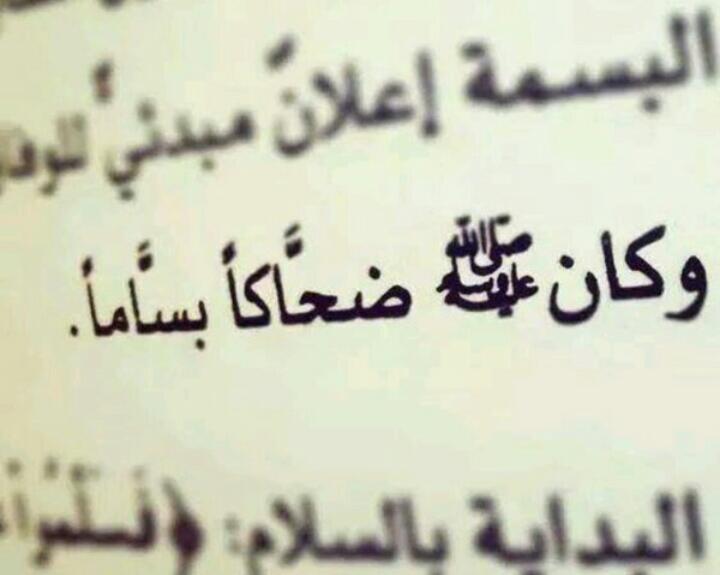 البسمة إعلانٌ مبدئيٌّ للوفا
وكان ﷺ ضحَّاكاً بسَّاماً.
البداية بالسلام: ﴿فَسَلِّمُوا